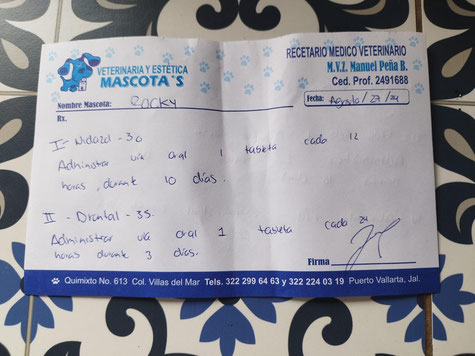 VETERINARIA Y ESTÉTICA
MASCOTA'S
RECETARIO MEDICO VETERINARIO
M.V.Z. Manuel Peña B.
Ced. Prof. 2491688
Nombre Mascota: Rocky
Fecha: Agosto/27/24
Rx.
I- Nidazol - 30
Administrar via oral 1 tableta cada 12
horas, durante 10 dias.
II - Drontal - 35
Administrar via oral 1 tableta cada 24
horas durante 3 dias.
Firma
Quimixto No. 613 Col. Villas del Mar Tels. 322 299 64 63 y 322 224 03 19 Puerto Vallarta, Jal.